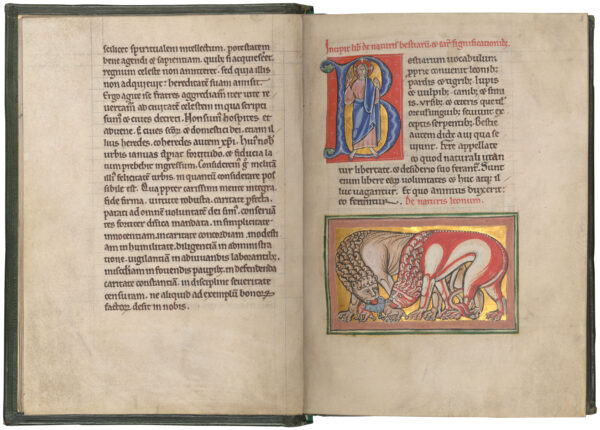 scilicet spiritualem intellectum. potestatem
bene agendi & sapientiam. quib; si acquireret
regnum celeste non amitteret. sed quia illis
non adquieuit: hereditatem suam amisit.
Ergo fratres aggrediam iter ut re
uertam ad ciuitatem celestem in qua scripti
sum' & ciues decreti. Non sum' hospites &
aduene. & ciues & domestici dei. etiam il
lius heredes. coheredes autem xpi. Hui' nob'
urbis ianuas fortitudo. & fiducia la
tum prebebit ingressum.
illi' felicitate urbis. in quantum considerare pos
sibile est. Qua ppter carissimi mente integra
fide firma. uirtute robusta. caritate pfecta.
parati ad omnem uoluntatem dei sim'. conserua
tes fortiter diica mandata. in simplicitate
innocentiam. in caritate concordiam. modesti
am in humilitate. diligentiam in administra
tione. uigilantiam in adiuuandis laborantib;
miscdiam in fouendis paupib; in defendenda
caritate constantiam. in discipline seueritate
censuram. ne aliquid ad exemplum bonor
factor desit in nobis.
Incipit lib' de naturis bestiarum. &
Bestiarum uocabulum
pprie conuenit leonib;
pardis & tigrib; lupis
& uulpib; canib; & simi
is. ursib; & ceteris que uel
ore uel unguib; seuiunt ex
ceptis serpentib; Bestie
autem dicte a ui qua se
uiunt. Fere appellate
eo quod naturali utan
tur libertate. & desiderio suo ferant. Sunt
enim libere eor uoluntates & huc & il
luc uagantur. Et quo animus duxerit:
eo feruntur. De naturis leonum.